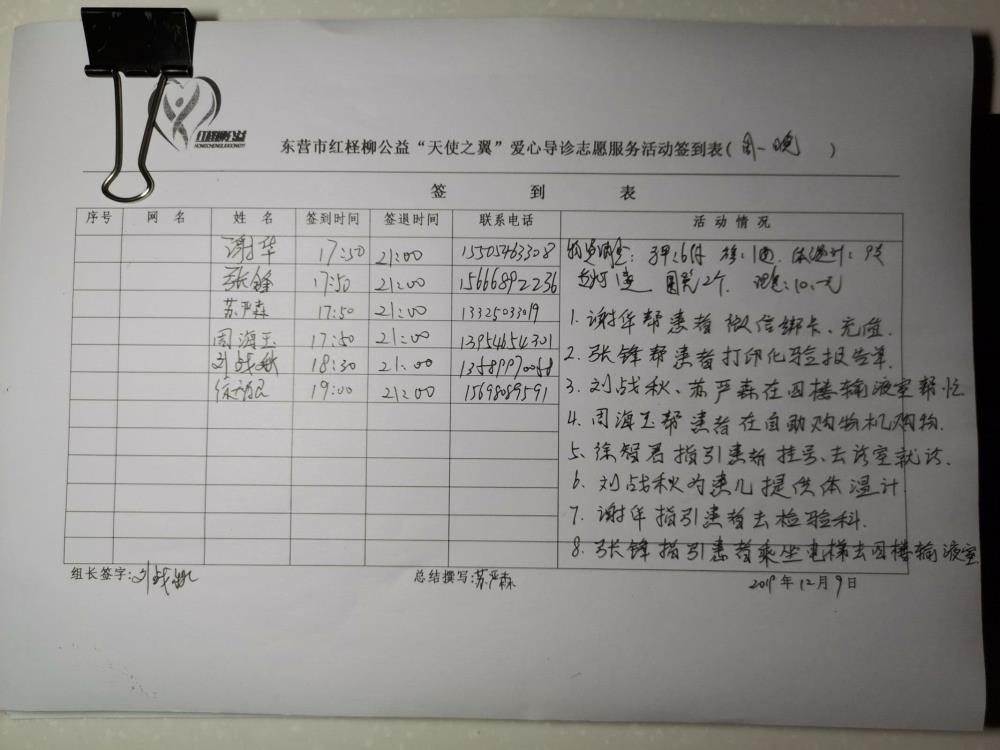 红柽柳公益
HONGCHENGLIUGONGYI
东营市红柽柳公益“天使之翼”爱心导诊志愿服务活动签到表(周一晚)
签 到 表
序号 网 名 姓 名 签到时间 签退时间 联系电话 活 动 情 况
谢华 17:50 21:00 15505463308
张锋 17:50 21:00 15666892236
苏严森 17:50 21:00 13325033019
周海玉 17:50 21:00 13954654301
刘战秋 18:30 21:00
徐智君 19:00 21:00 15698089591
1. 谢华帮患者微信绑卡、充值.
2. 张锋帮患者打印化验报告单.
3. 刘战秋、苏严森在四楼输液室帮忙
4. 周海玉帮患者在自助购物机购物.
5. 徐智君指引患者挂号、去诊室就诊.
6. 刘战秋为患儿提供体温计.
7. 谢华指引患者去检验科.
8. 张锋指引患者乘坐电梯去四楼输液室
组长签字:刘战秋 总结撰写:苏严森 2019年12月9日